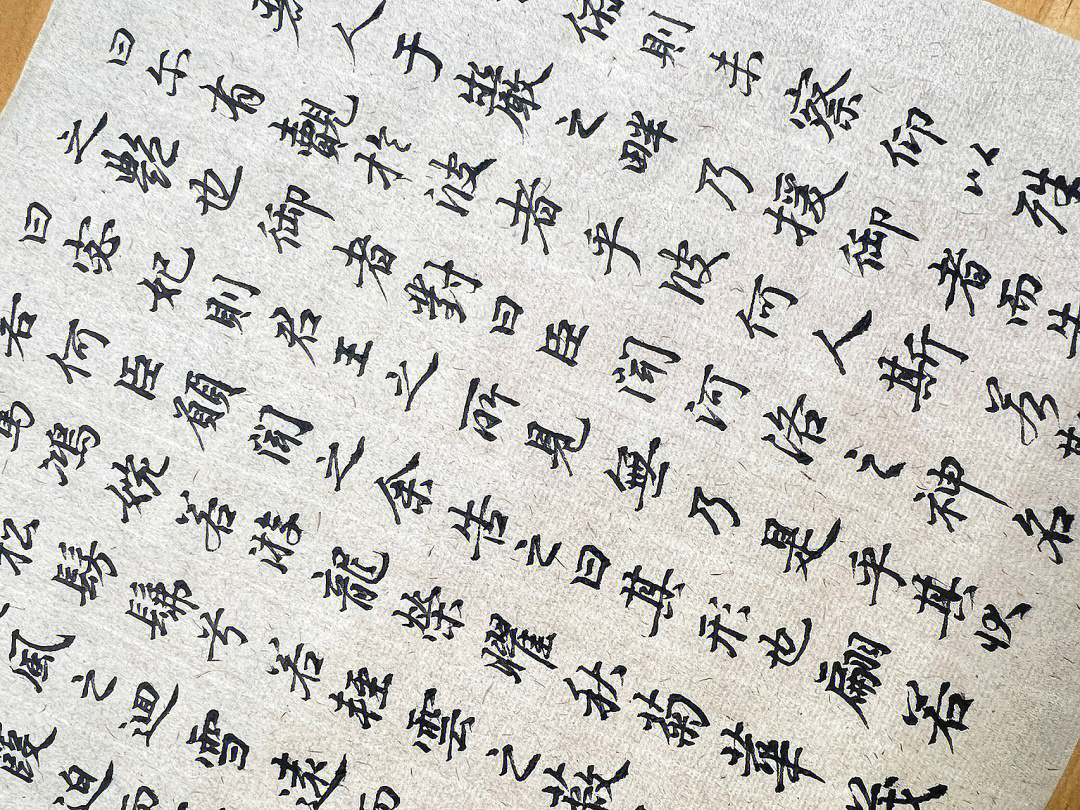 俯則未察仰以殊
人于巖之畔乃援御者而告
曰尔有覿扵彼者乎彼何人斯若此
之艷也御者對曰臣聞河洛之神名
曰宓妃則君王之所見無乃是乎其狀
若何臣願聞之余告之曰其形也翩若
驚鴻婉若游龍榮曜秋菊華茂
松髣髴兮若輕雲之蔽
風之迴雪遠而
霞迫而